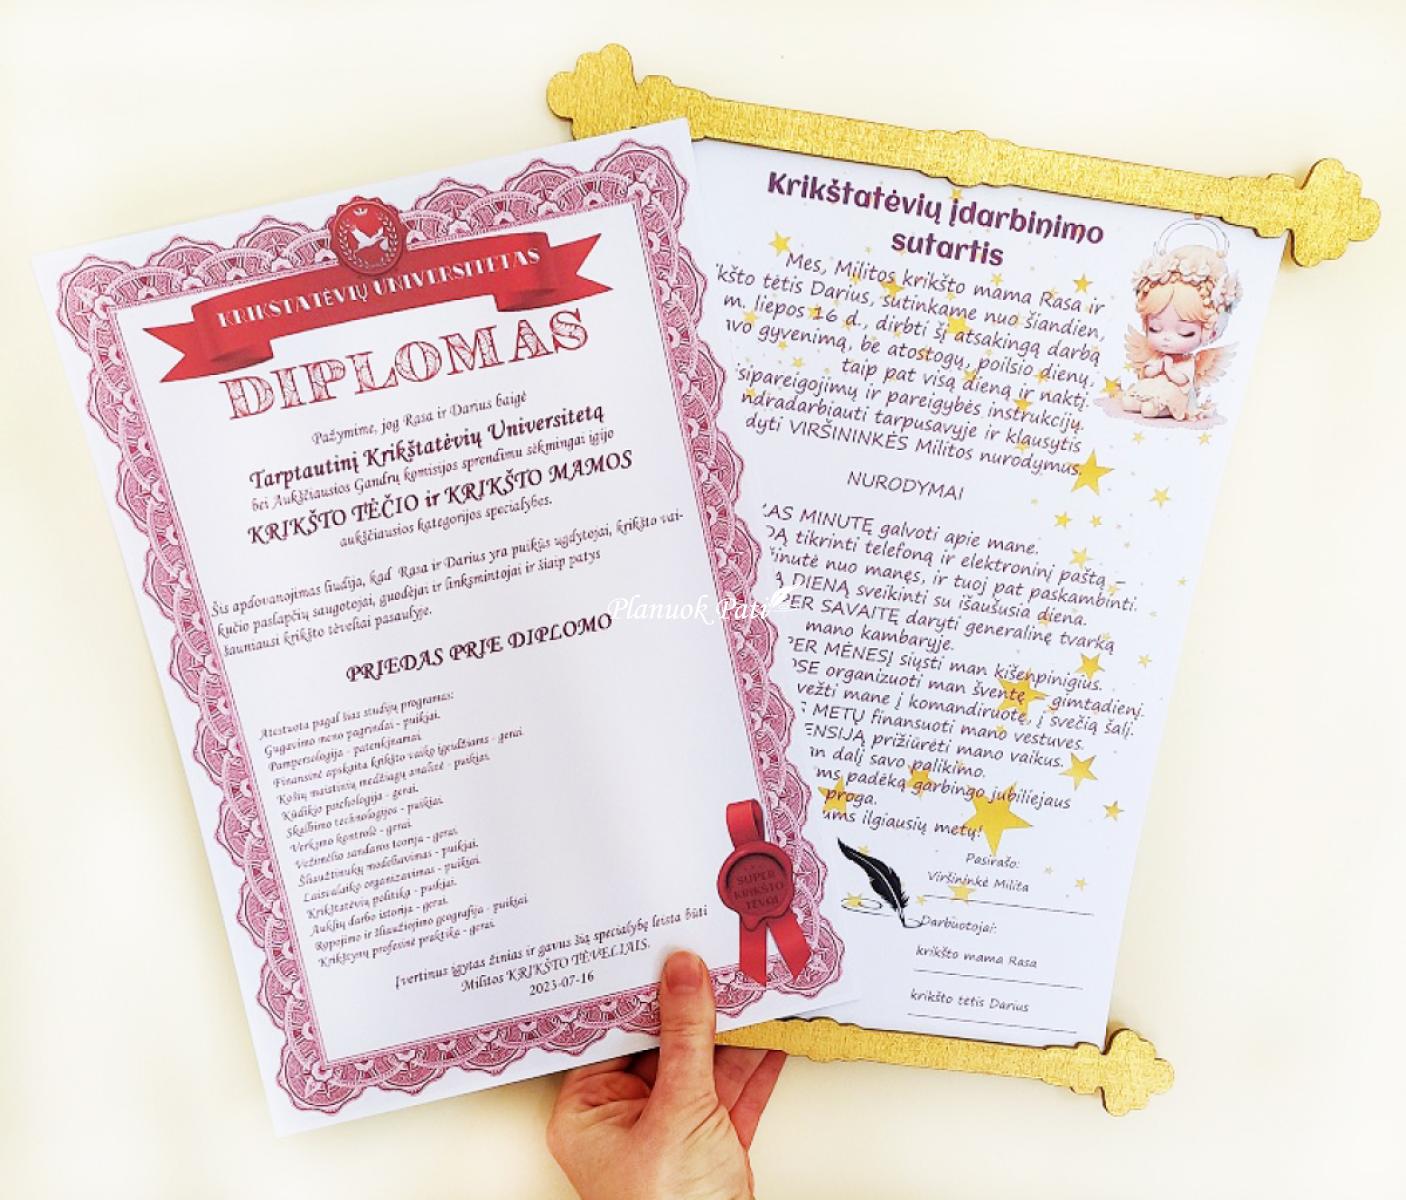 KRIKŠTATĖVIŲ UNIVERSITETAS
DIPLOMAS
Pažymime, jog Rasa ir Darius baigė
Tarptautinį Krikštatėvių Universitetą
bei Aukščiausios Gandrų komisijos sprendimu sėkmingai įgijo
KRIKŠTO TĖČIO ir KRIKŠTO MAMOS
aukščiausios kategorijos specialybes.
Šis apdovanojimas liudija, kad Rasa ir Darius yra puikūs ugdytojai, krikšto vai-
kučio paslapčių saugotojai, guodėjai ir linksmintojai ir šiaip patys
šauniausi krikšto tėveliai pasaulyje.
PRIEDAS PRIE DIPLOMO
Atestuota pagal šias studijų programas:
Gugavimo meno pagrindai - puikiai.
Pampersologija - patenkinamai.
Finansinė apskaita krikšto vaiko įgeidžiams - gerai.
Košių maistinių medžiagų analizė - puikiai.
Kūdikio psichologija - gerai.
Skalbimo technologijos - puikiai.
Verkimo kontrolė - gerai.
Vežimėlio sandaros teorija - gerai.
Šliaužtinukų modeliavimas - puikiai.
Laisvalaikio organizavimas - puikiai.
Krikštatėvių politika - puikiai.
Auklių darbo istorija - gerai.
Ropojimo ir šliaužiojimo geografija - puikiai.
Krikštynų profesinė praktika - gerai.
Įvertinus įgytas žinias ir gavus šią specialybę leista būti
Militos KRIKŠTO TĖVELIAIS.
2023-07-16
SUPER
KRIKŠTO
TĖVAI
Planuok Pati
Krikštatėvių įdarbinimo
sutartis
Mes, Militos krikšto mama Rasa ir
kšto tėtis Darius, sutinkame nuo šiandien,
m. liepos 16 d., dirbti šį atsakingą darbą
vo gyvenimą, be atostogų, poilsio dienų,
taip pat visą dieną ir naktį.
sipareigojimų ir pareigybės instrukcijų.
ndradarbiauti tarpusavyje ir klausytis
dyti VIRŠININKĖS Militos nurodymus.
NURODYMAI
AS MINUTĘ galvoti apie mane.
DĄ tikrinti telefoną ir elektroninį paštą –
inutė nuo manęs, ir tuoj pat paskambinti.
Ą DIENĄ sveikinti su išaušusia diena.
PER SAVAITĘ daryti generalinę tvarką
mano kambaryje.
PER MĖNESĮ siųsti man kišenpinigius.
OSE organizuoti man šventę – gimtadienį.
vežti mane į komandiruotę, į svečią šalį.
METŲ finansuoti mano vestuves.
ENSIJĄ prižiūrėti mano vaikus.
m dalį savo palikimo.
ms padėką garbingo jubiliejaus
proga.
ums ilgiausių metų!
Pasirašo:
Viršininkė Milita
Darbuotojai:
krikšto mama Rasa
krikšto tėtis Darius